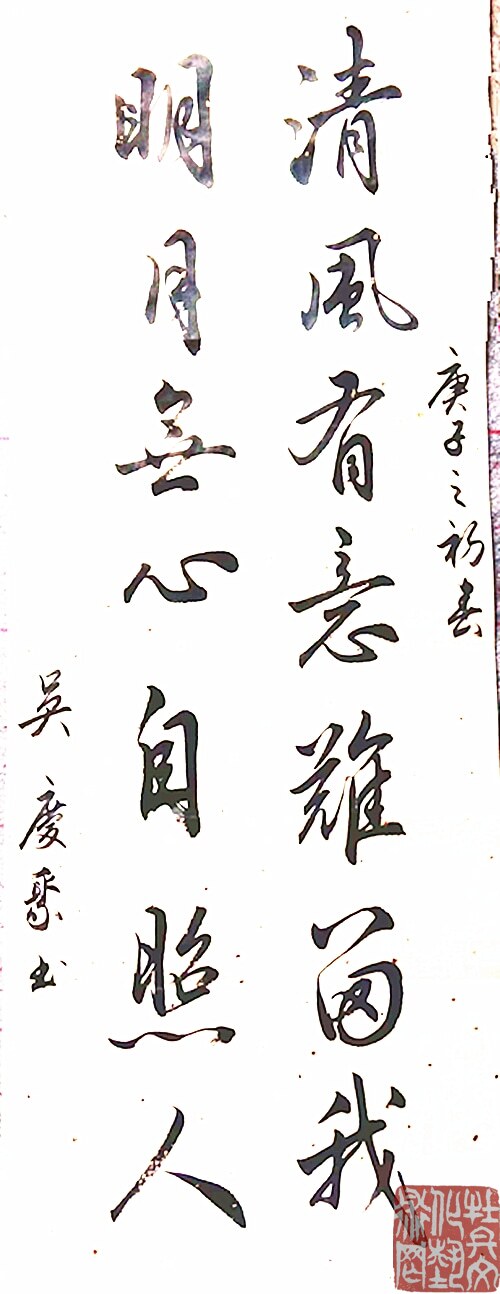 庚子之初春
清風有意難留我
明月無心自照人
吴慶聚书